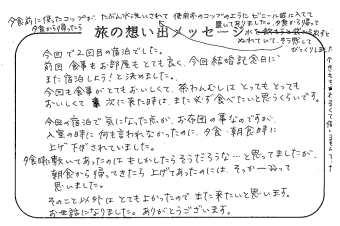 夕食前に使ったコップが、たぶん水洗いされて 使用前のコップのようにビニール袋に入れて
置いてありました。夕食から帰って
夕食から帰ったら
旅の想い出メッセージ
今回で2回目の宿泊でした。
前回 食事もお部屋もとても良く、今回結婚記念日に
また宿泊しよう!と決めました。
今回も食事がとてもおいしくて、茶わんむしは とっても とっても
おいしくて 次に来た時は、また必ず食べたいと思うくらいです。
今回の宿泊で気になった点が、お布団の事なのですが、
入室の時に何も言われなかったのに、夕食・朝食時に
上げ下げされていました。
夕食時敷いてあったのは もしかしたらそうだろうな…と思ってましたが、
朝食から帰ってきたら 上げてあったのには、そっか…ぬって
思いました。
そのこと以外は とてもよかったので また来たいと思います。
お世話になりました。ありがとうございます。